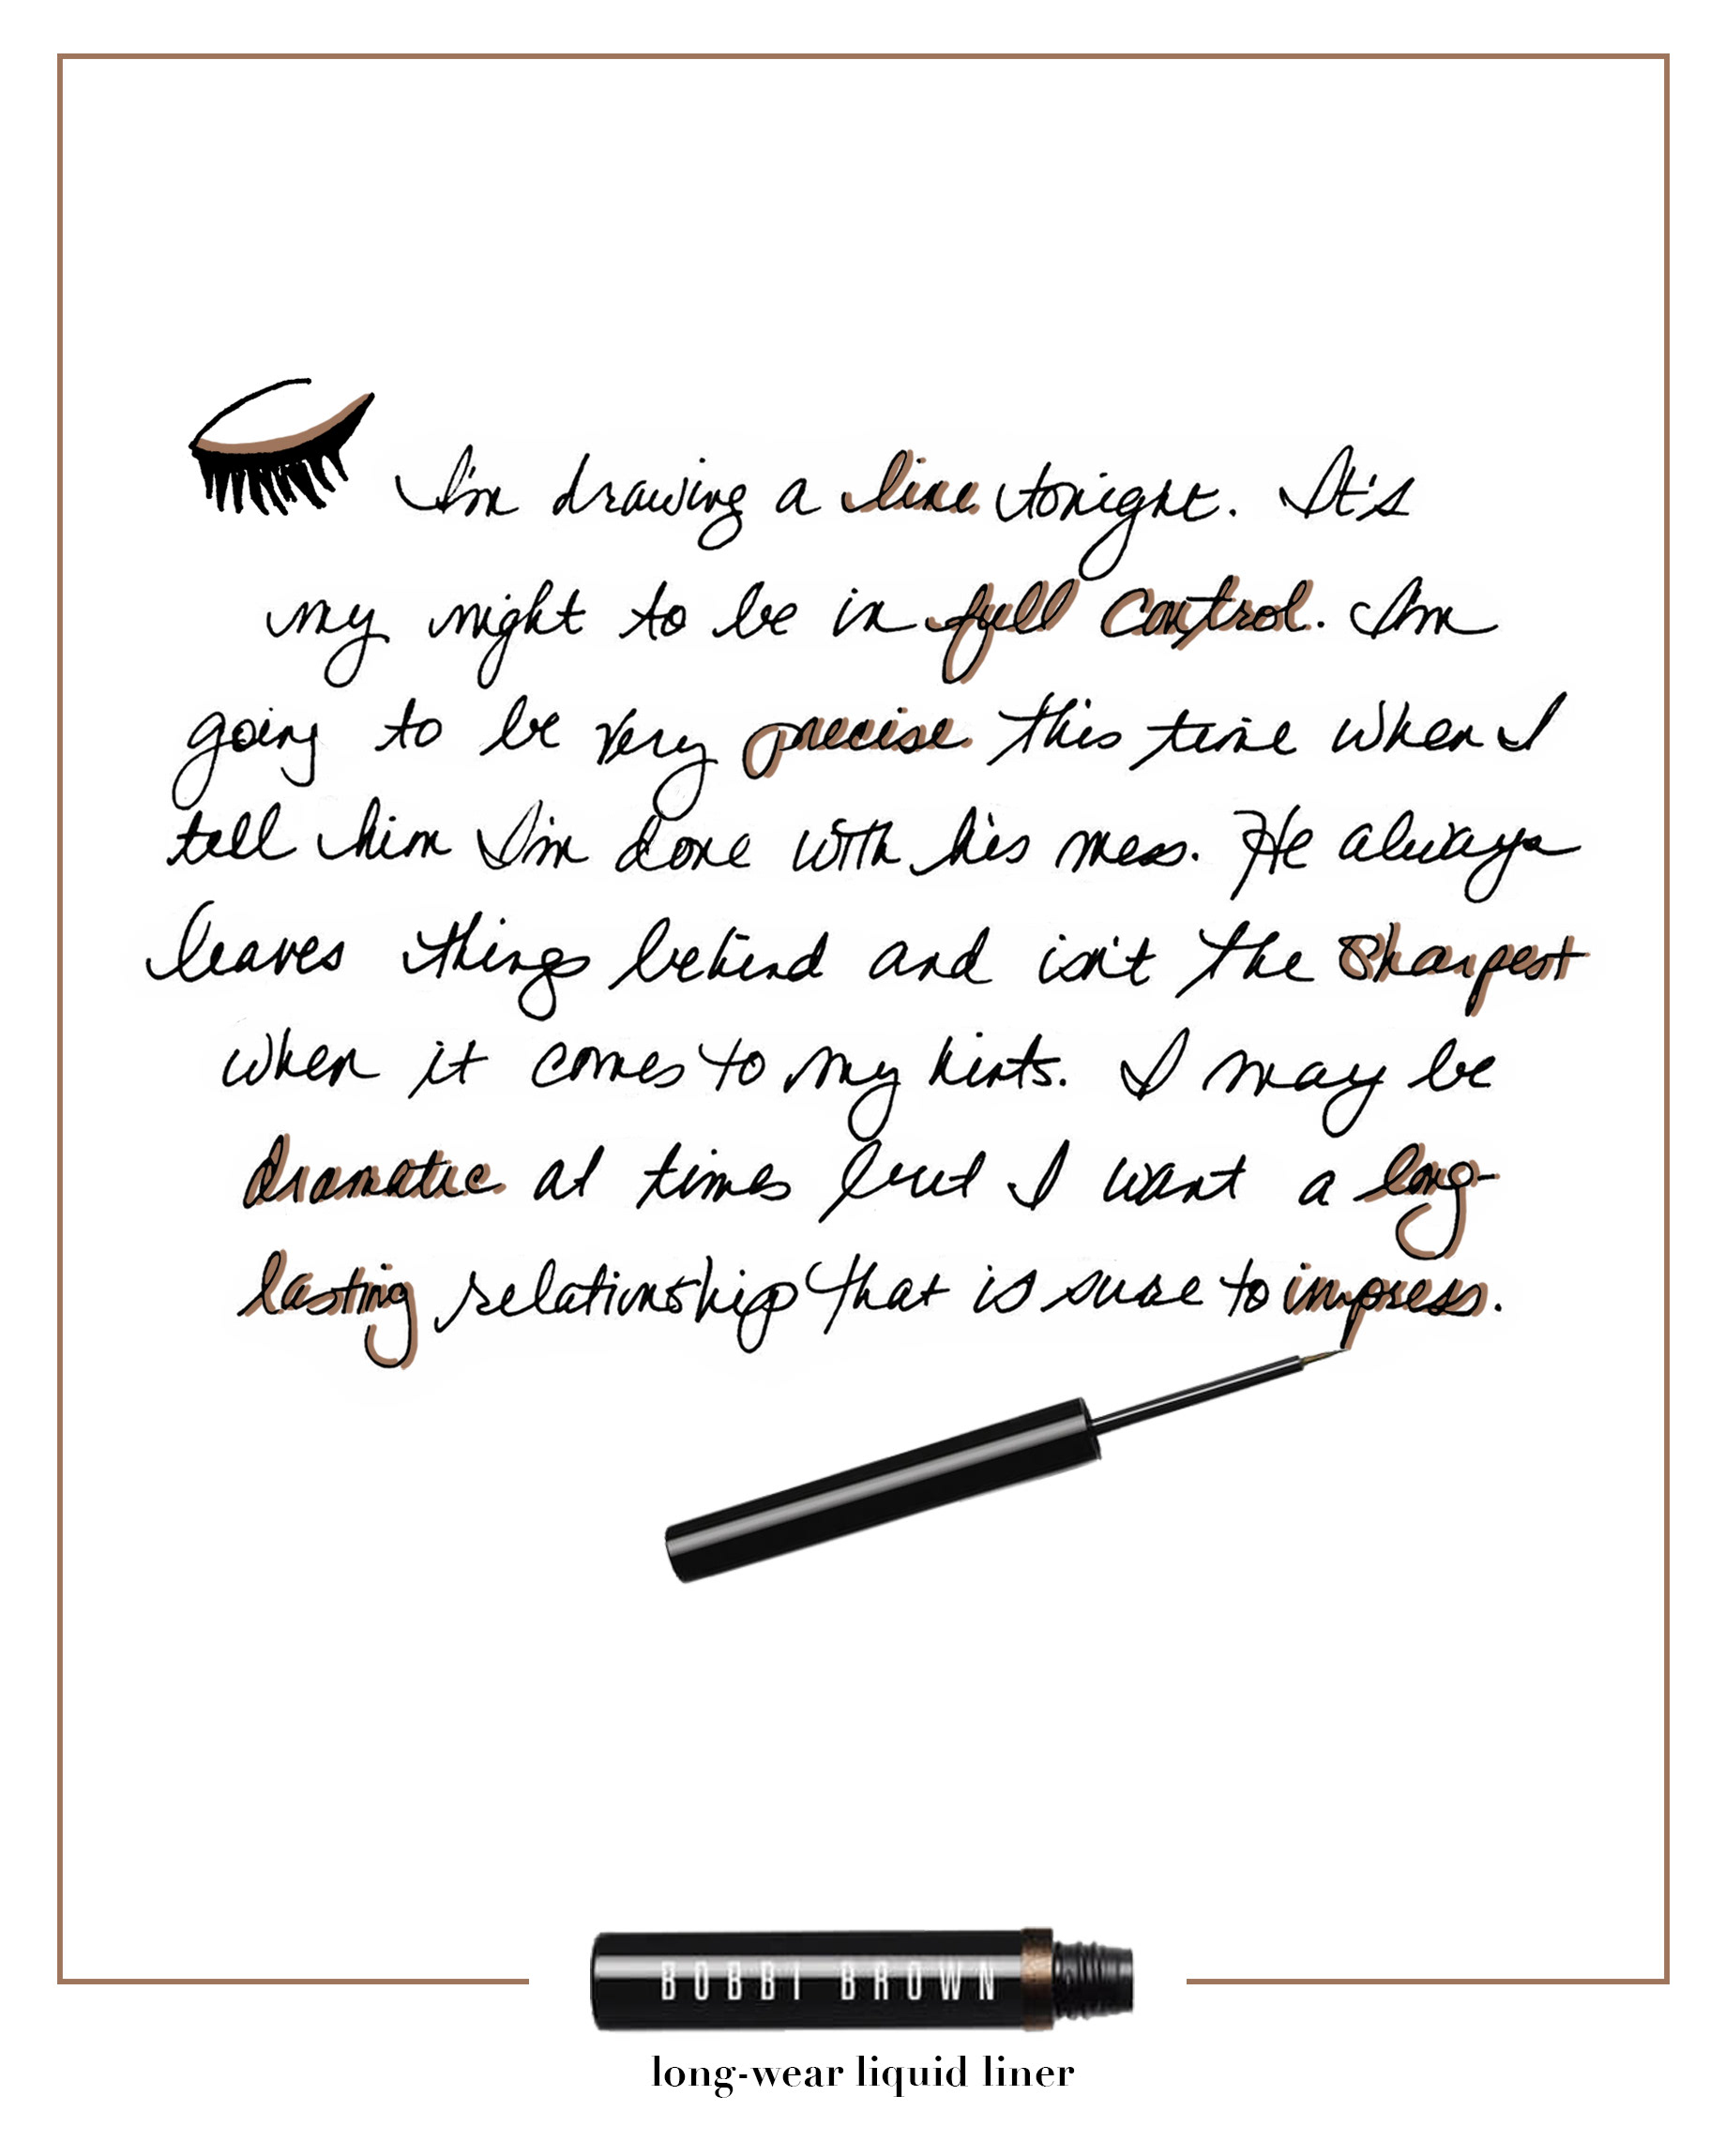 I'm drawing a line tonight. It's
my night to be in full control. I'm
going to be very precise this time when I
tell him I'm done with his mess. He always
leaves things behind and isn't the sharpest
when it comes to my hints. I may be
dramatic at times but I want a long-
lasting relationship that is sure to impress.
BOBBI BROWN
long-wear liquid liner